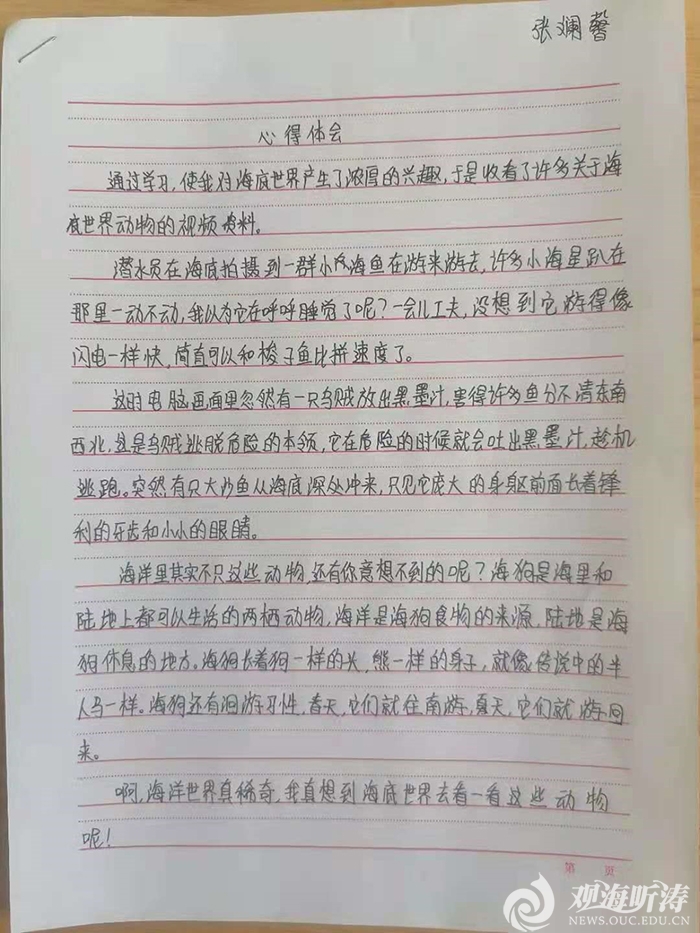 张斓馨
心得体会
通过学习,使我对海底世界产生了浓厚的兴趣,于是收看了许多关于海
底世界动物的视频资料。
潜水员在海底拍摄到一群小鱼海鱼在游来游去,许多小海星趴在
那里一动不动,我以为它在呼呼睡觉了呢?一会儿工夫,没想到它游得像
闪电一样快,简直可以和梭子鱼比拼速度了。
这时电脑画面里忽然有一只乌贼放出黑墨汁,害得许多鱼分不清东南
西北,这是乌贼逃脱危险的本领,它在危险的时候就会吐出黑墨汁,趁机
逃跑。突然有只大沙鱼从海底深处冲来,只见它庞大的身躯前面长着锋
利的牙齿和小小的眼睛。
海洋里其实不只这些动物,还有你意想不到的呢?海狗是海里和
陆地上都可以生活的两栖动物,海洋是海狗食物的来源,陆地是海
狗休息的地方。海狗长着狗一样的头,熊一样的身子,就像传说中的半
人马一样。海狗还有洄游习性,春天,它们就往南游,夏天,它们就游回
来。
啊,海洋世界真稀奇,我真想到海底世界去看一看这些动物
呢!
第 页
观海听涛
NEWS.OUC.EDU.CN